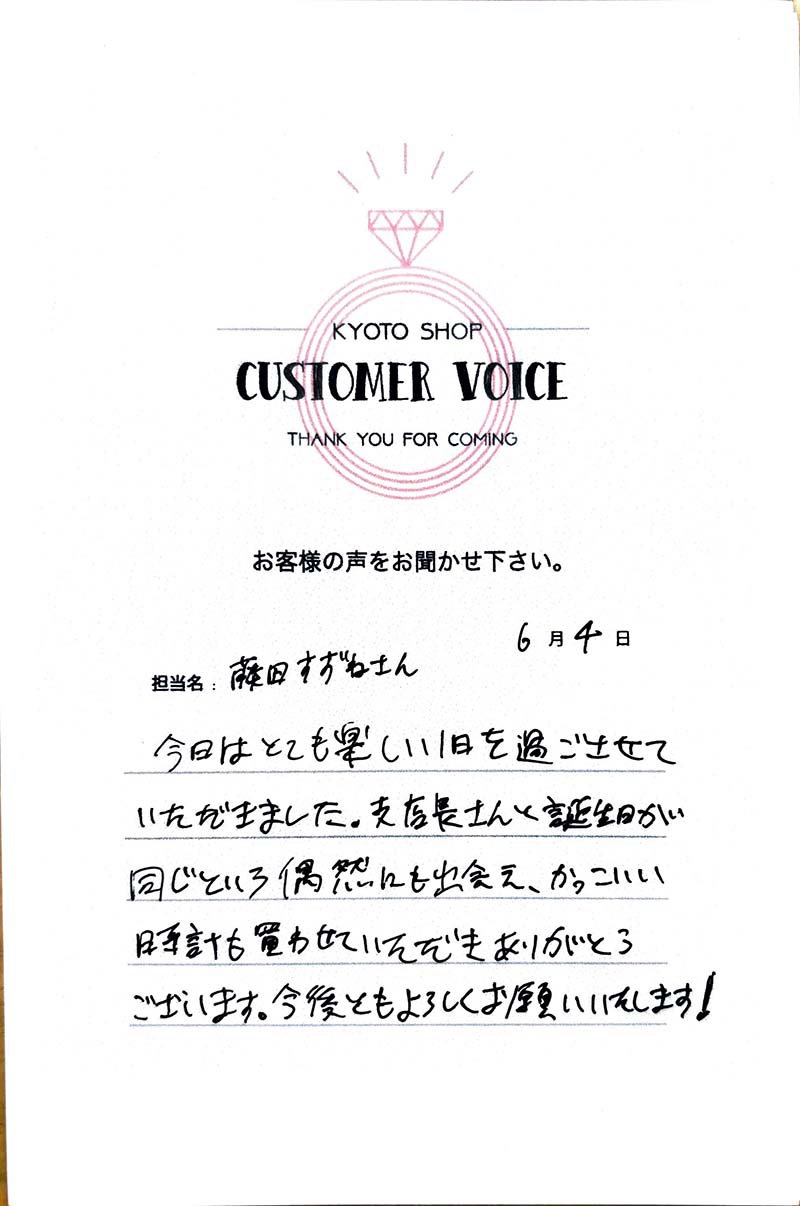 KYOTO SHOP
CUSTOMER VOICE
THANK YOU FOR COMING
お客様の声をお聞かせ下さい。
6月4日
担当名：藤田すずねさん
今日はとても楽しい1日を過ごさせて
いただきました。支店長さんと誕生日が
同じという偶然にも出会え、かっこいい
時計も買わせていただきありがとう
ございます。今後ともよろしくお願いいたします！